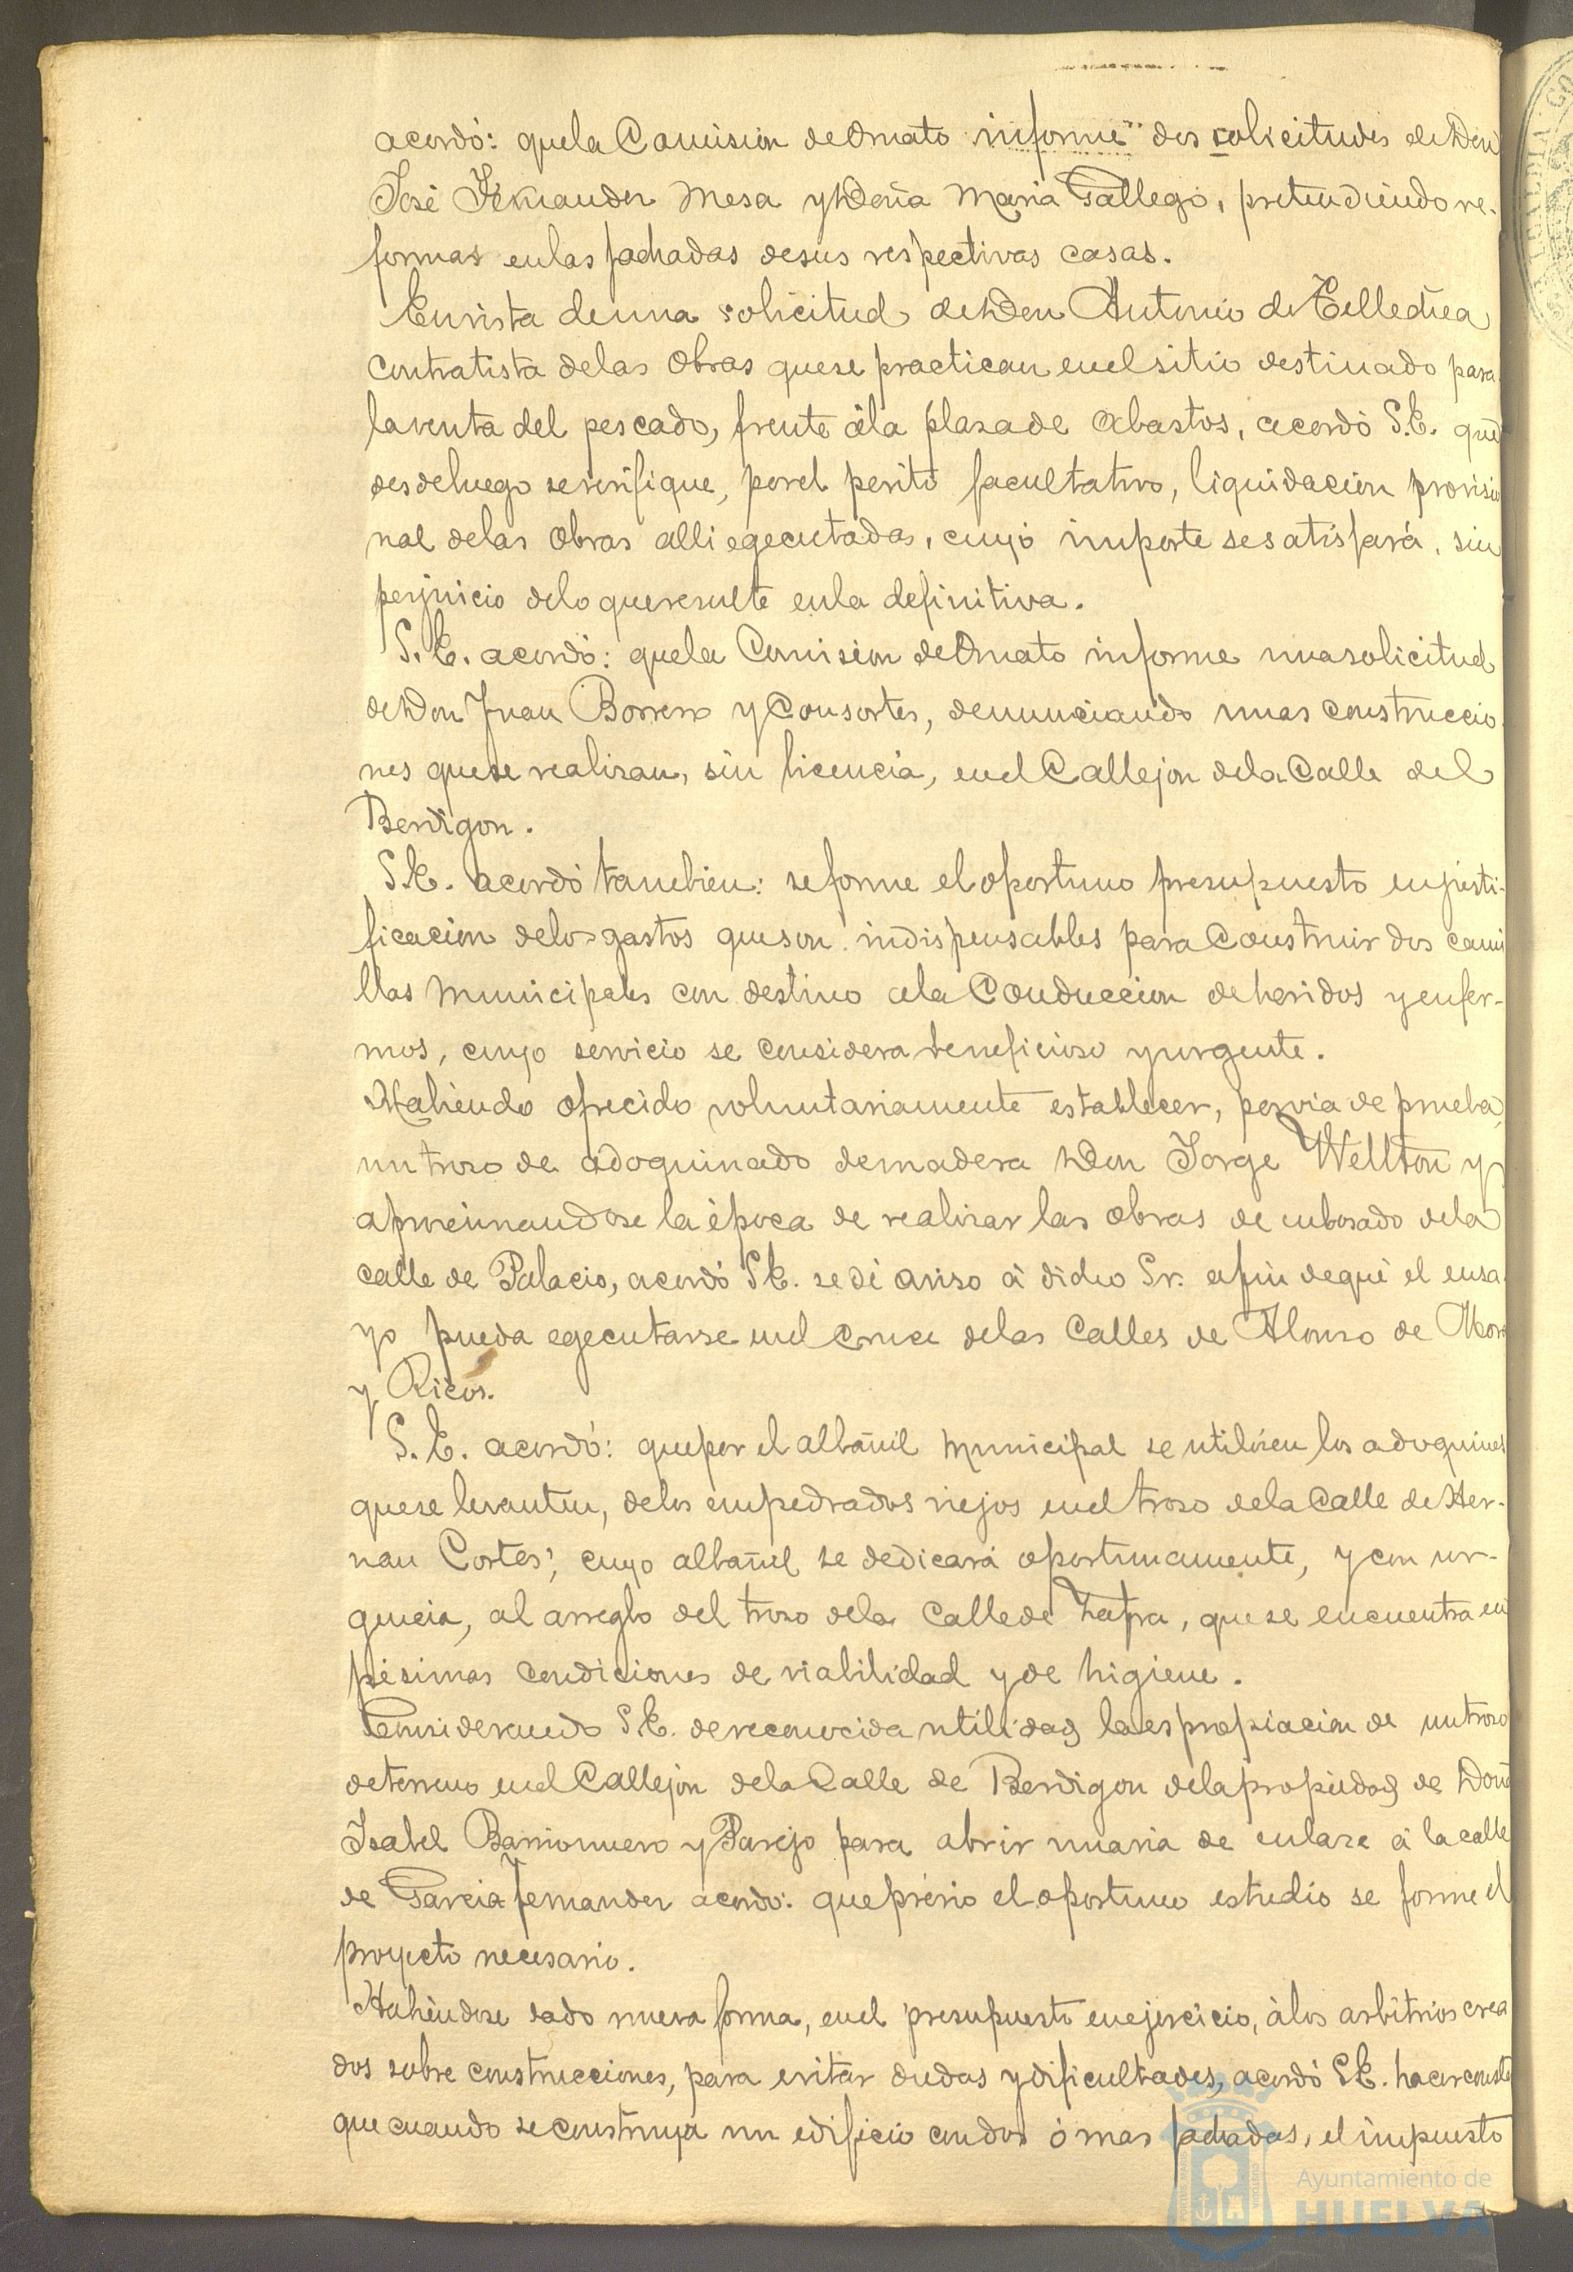 acordó: que la Comision de Ornato informe dos solicitudes de Don
José Fernandez Mesa y Doña Maria Gallego, pretendiendo re-
formas en las fachadas de sus respectivas casas.
En vista de una solicitud de Don Antonio de
contratista de las obras que se practican en el sitio destinado para
la venta del pescado, frente á la plaza de Abastos, acordó S.E. que
desde luego se verifique, por el perito facultativo, liquidacion provisio
nal de las obras alli egecutadas, cuyo importe se satisfará, sin
perjuicio de lo que resulte en la definitiva.
S.E. acordó: que la Comision de Ornato informe una solicitud
de Don Juan Borrero y Consortes, denunciando unas construccio
nes que se realizan, sin licencia, en el Callejon de la Calle del
Berdigon.
S.E. acordó tambien: se forme el oportuno presupuesto en justi-
ficacion de los gastos que son indispensables para construir dos cami
llas municipales con destino a la conduccion de heridos y enfer-
mos, cuyo servicio se considera beneficioso y urgente.
Habiendo ofrecido voluntariamente establecer, por via de prueba,
un trozo de adoquinado de madera Don Jorge Wellton y
aproximandose la época de realizar las obras de embosado de la
calle de Palacio, acordó S.E. se dé aviso á dicho Sr. a fin de qué el ensa
yo pueda egecutarse en el cruce de las Calles de Alonso de Mora
y Ricos.
S.E. acordó: que por el albañil municipal se utilicen los adoquines
que se levanten, de los empedrados viejos en el trozo de la Calle de Her-
nan Cortes; cuyo albañil se dedicará oportunamente, y con ur-
gencia, al arreglo del trozo de la Calle de Zafra, que se encuentra en
pésimas condiciones de viabilidad y de higiene.
Considerando S.E. de reconocida utilidad la espropiacion de un trozo
de terreno en el Callejon de la Calle de Berdigon de la propiedad de Doña
Isabel Barrionuevo y Parejo para abrir una via de enlaze á la calle
de Garcia Fernandez acordó: que prévio el oportuno estudio se forme el
proyecto necesario.
Habiendose dado nueva forma, en el presupuesto en ejercicio, á los arbitrios crea
dos sobre construcciones, para evitar dudas y dificultades, acordó S.E. hacer conste
que cuando se construya un edificio con dos ó mas fachadas, el impuesto
Ayuntamiento de
HUELVA